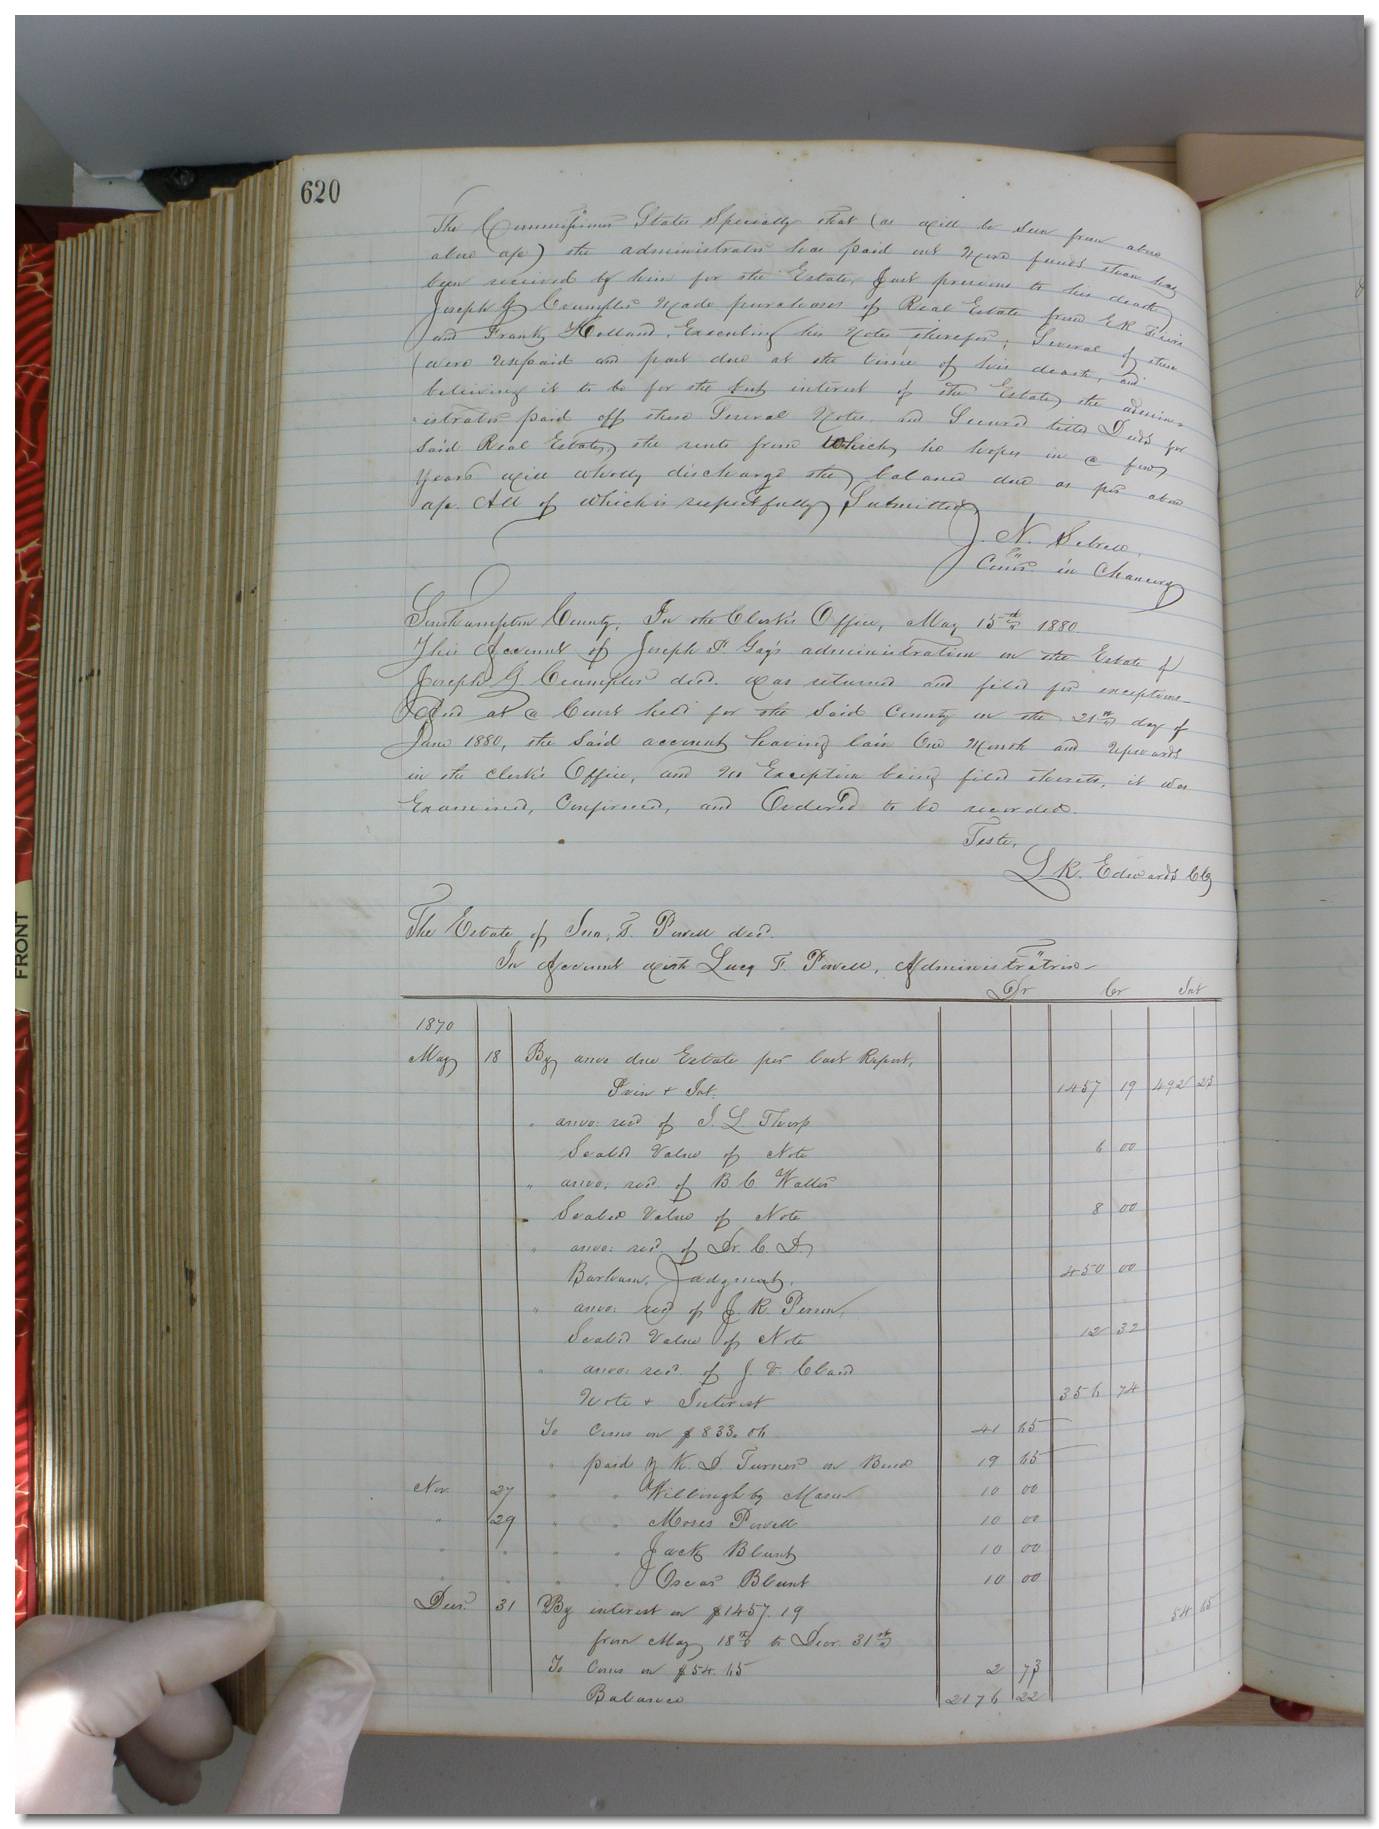 620
The Commissioner States Specially that (as will be seen from above
above a/c) the administrator has paid out more funds than has
been received by him for the Estate, Just previous to his death
Joseph G Crumpler made purchases of Real Estate from E.R.
and Frank Holland, Executing his Notes therefor; Several of them
were unpaid and past due at the time of his death, and
believing it to be for the best interest of the Estate, the admin-
istrator paid off these Several Notes and Secured titles Deeds for
Said Real Estate, the rents from Which he hopes in a few
years will wholly discharge the balance due as per above
a/c. All of which is respectfully Submitted
J. N. Sebrell,
Comr in Chancery
Southampton County, In the Clerk's Office, May 15th 1880.
This Account of Joseph P. Gay's administration on the Estate of
Joseph G Crumpler decd. was returned and filed for exceptions
And at a Court held for the Said County on the 21st day of
June 1880, the Said account having lain One Month and Upwards
in the clerk's Office, and No Exception being filed thereto, it was
Examined, Confirmed, and Ordered to be recorded.
Teste,
L.R. Edwards Clk
The Estate of T. Powell decd.
In Account with Lucy F. Powell, Administratrix
Dr Cr Int
1870
May 18 By amo due Estate per last Report,
Prin & Int. 1457 19 492 23
" amo: recd of J. L. Thorp
Scaled Value of Note 6 00
" amo: recd. of B. C. Waller
Scaled Value of Note 8 00
" amo: recd of Dr. C. D.
Barham, Judgment, 450 00
" amo: recd of J. R.
Scaled Value of Note 12 32
" amo: recd. of J. V. Claud
Note & Interest 356 74
To Coms on $833.06 41 65
" paid K. D Turner on Bond 19 65
Nov. 27 " " Willoughby Mason 10 00
" 29 " " Moses Powell 10 00
" " " " Jack Blunt 10 00
" " " " Oscar Blunt 10 00
Decr. 31 By interest on $1457.19 54 65
from May 18th to Decr. 31st
To Coms on $54.65 2 73
Balance 2176 22
FRONT